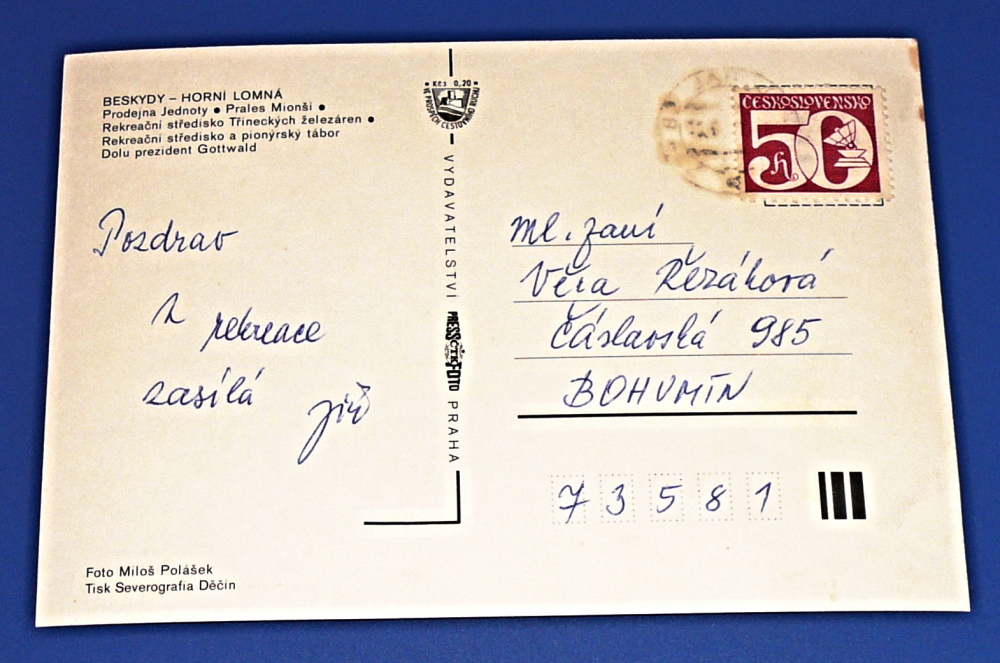 BESKYDY – HORNÍ LOMNÁ
Prodejna Jednoty • Prales Mionší •
Rekreační středisko Třineckých železáren •
Rekreační středisko a pionýrský tábor
Dolu prezident Gottwald
Pozdrav
z rekreace
zasílá Jiří
Foto Miloš Polášek
Tisk Severografia Děčín
Kčs 0,20
VE PROSPĚCH CESTOVNÍHO RUCHU
VYDAVATELSTVÍ PRESSFOTO PRAHA
ČTK
ČESKOSLOVENSKO
50 h
ml. paní
Věra Řezáková
Čáslavská 985
BOHUMÍN
73581